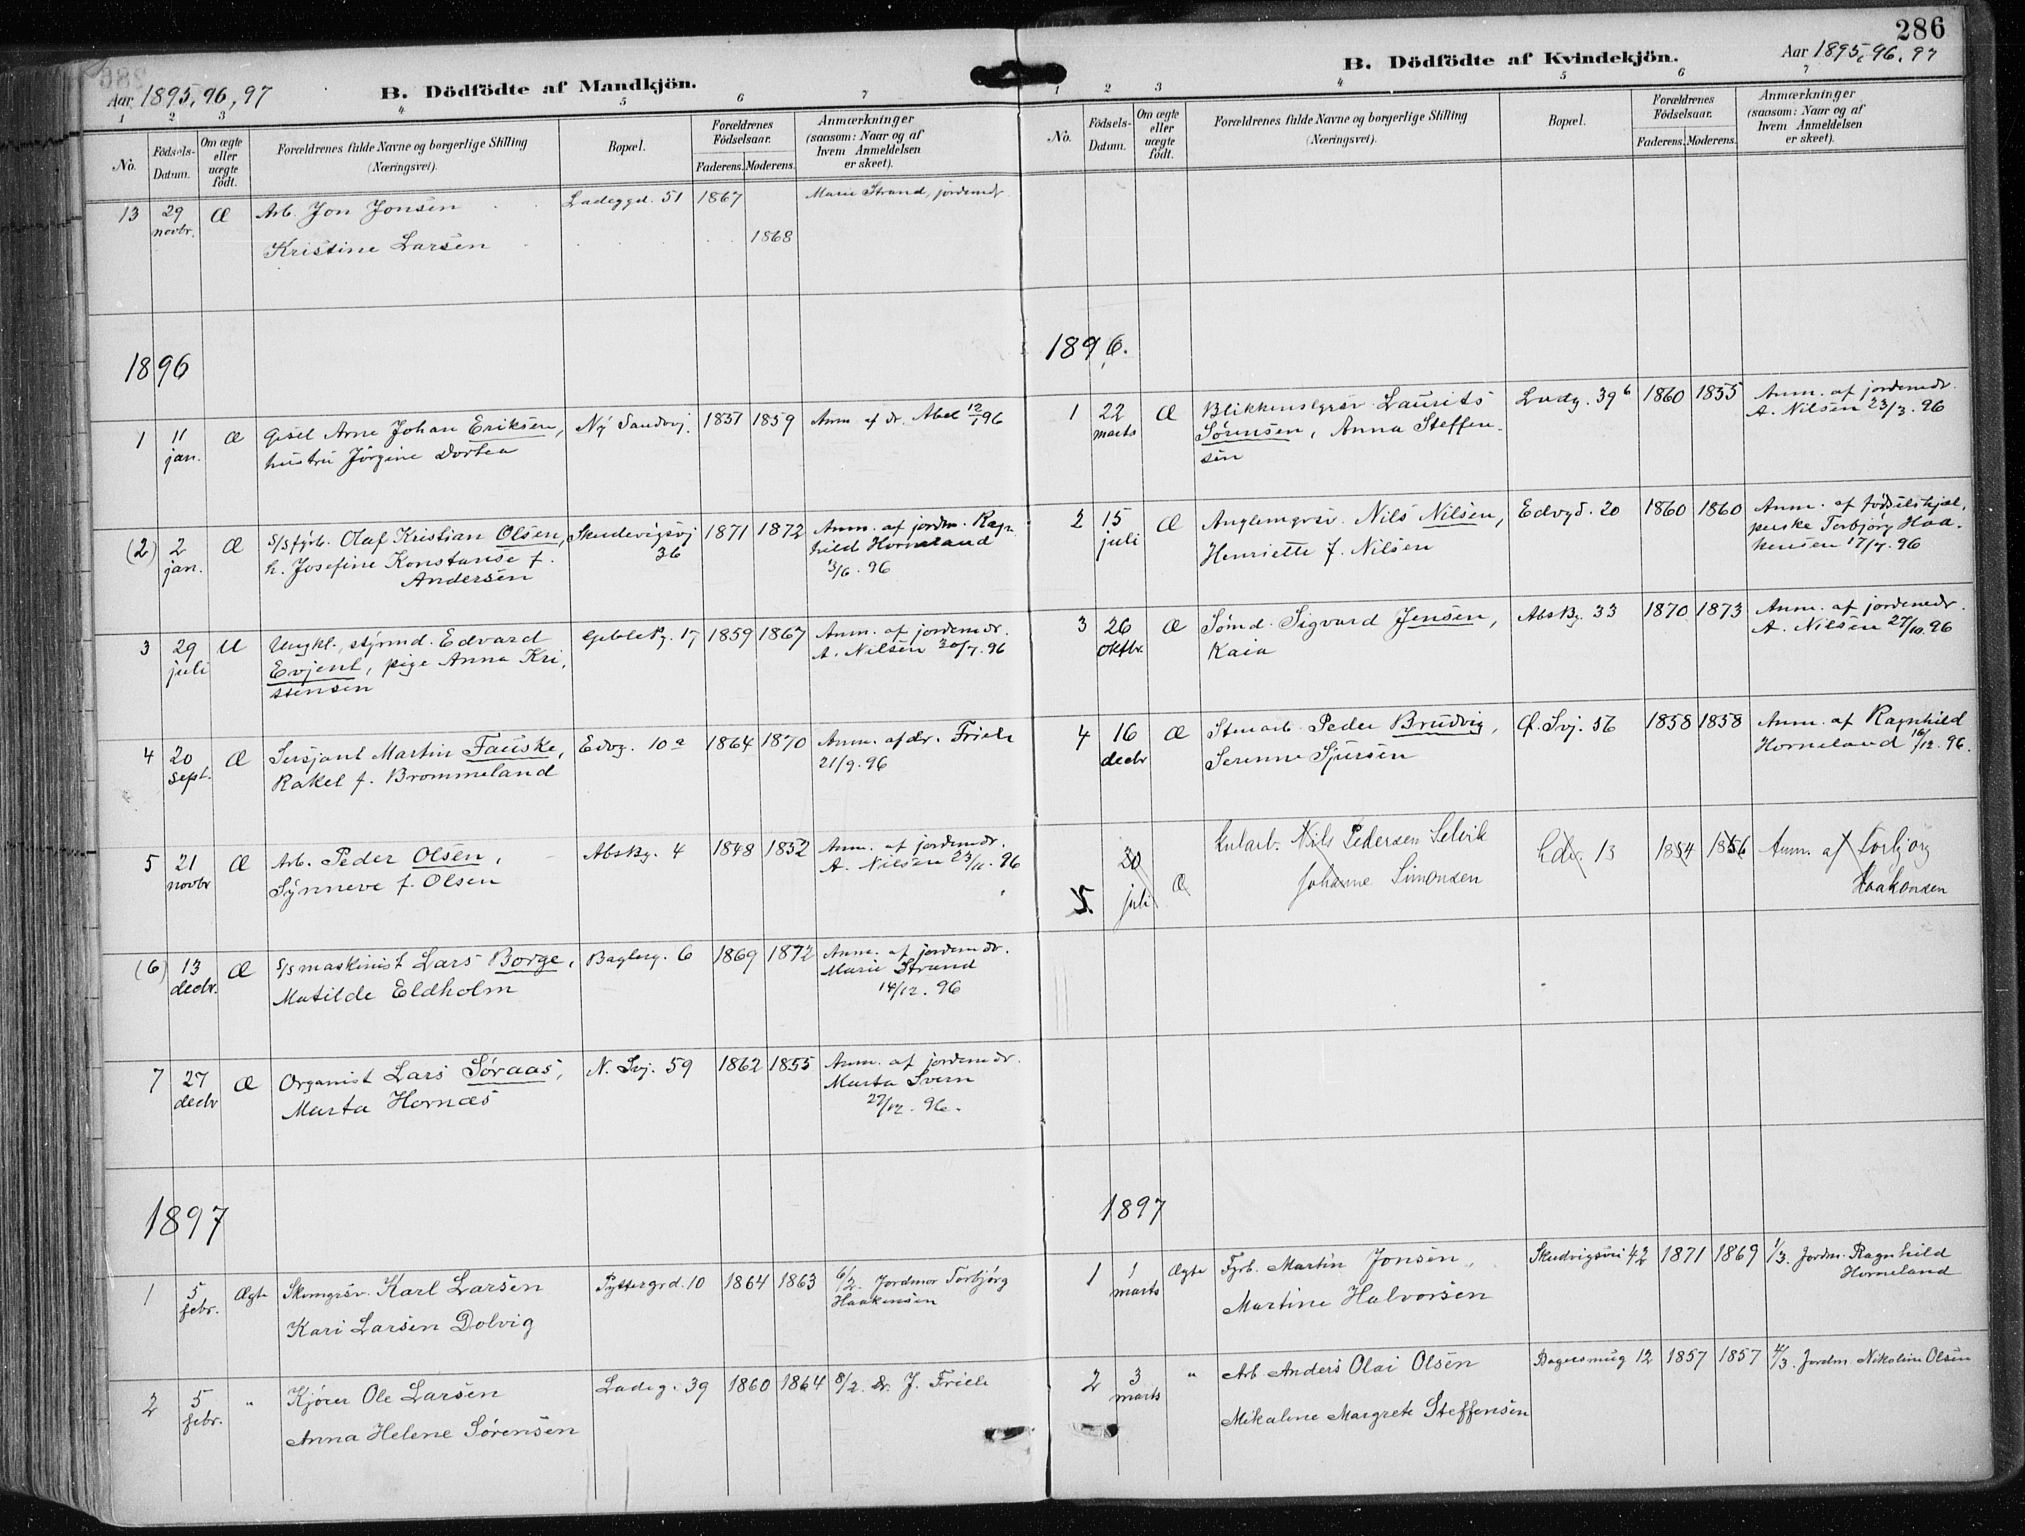 Aar 1895, 96, 97
B. Dödfödte af Mandkjön.
1 2 3 4 5 6 7
No.
Födsels-Datum.
Om ægte eller uægte födt.
Forældrenes fulde Navne og borgerlige Stilling (Næringsvei).
Bopæl.
Forældrenes Födselsaar.
Faderens. Moderens.
Anmærkninger (saasom: Naar og af hvem Anmeldelsen er skeet).
13 29 novbr. Æ Arb. Jon Jonsen Ladeggd. 51 1867 Marie Strand, jordemdr
Kristine Larsen 1868
1896
1 11 jan. Æ Gisel Arne Johan Eriksen, Ny Sandvj. 1851 1859 Anm. af dr. Abel 12/1 96
hustru Jörgine Dortea
(2) 2 jan. Æ S/S fyrb. Olaf Kristian Olsen, Skudevigsvj 36 1871 1872 Anm. af jordm. Ragn
h. Josefine Konstanse f. hild Horneland
Andersen 3/6. 96
3 29 juli U Ungkl., styrmd. Edvard Gebleky. 17 1859 1867 Anm. af jordemdr.
Evjent, pige Anna Kri, A. Nilsen 30/7. 96
stensen
4 20 sept. Æ Sersjant Martin Fauske, Edvg. 10 a 1864 1870 Anm. af dr. Friele
Rakel f. Brommeland 21/9. 96
5 21 novbr Æ Arb. Peder Olsen, Absky. 4 1848 1852 Anm. af jordemdr.
Synneve f. Olsen A. Nilsen 23/11. 96
(6) 13 decbr. Æ S/S maskinist Lars Borge, Bagleng. 6 1869 1872 Anm. af jordemdr.
Matilde Eldholm Marie Strand
14/12. 96
7 27 decbr Æ Organist Lars Søraas, N. Svj. 59 1862 1855 Anm. af jordemdr.
Marta Hornæs Marta Svern
27/12. 96.
1897
1 5 febr. Ægte Skomgrsv. Karl Larsen Pyttergrd. 10 1864 1863 6/2. Jordmor Torbjørg
Kari Larsen Dolvig Haakensen
2 5 febr. " Kjører Ole Larsen Ladeg. 39 1860 1864 8/2. Dr. J. Friele
Anna Helene Sørensen
286
B. Dödfödte af Kvindekjön.
Aar 1895, 96, 97
1 2 3 4 5 6 7
No.
Födsels-Datum.
Om ægte eller uægte födt.
Forældrenes fulde Navne og borgerlige Stilling (Næringsvei).
Bopæl.
Forældrenes Födselsaar.
Faderens. Moderens.
Anmærkninger (saasom: Naar og af hvem Anmeldelsen er skeet).
1896.
1 22 marts Æ Blikkenslgrsv. Laurits Ladg. 39 b 1860 1855 Anm. af jordemdr.
Sørensen, Anna Steffen- A. Nilsen 23/3. 96
sen
2 15 juli Æ Anglemgrsv. Nils Nilsen, Edvgd. 20 1860 1860 Anm. af fødselshjæl,
Henriette f. Nilsen perske Torbjørg Haa-
kensen 17/7. 96
3 26 oktbr. Æ Sömd. Sigvard Jensen, Absky. 33 1870 1873 Anm. af jordemdr.
Kaia A. Nilsen 27/10. 96
4 16 decbr Æ Stenarb. Peder Brudvig, Ø. Svj. 56 1858 1858 Anm. af Ragnhild
Serenne Sjursen Horneland 16/12. 96.
5. 20 juli Æ Nils Pedersen Selvik 13 1854 1856 Anm. af Torbjørg
Johanne Simonsen Haakonsen
1897
1 1 marts Ægte Fyrb. Martin Jonsen, Skudvigsvei 42 1871 1869 1/3. Jordm. Ragnhild
Martine Halvorsen Horneland
2 3 marts " Arb Anders Olai Olsen Dagersmug 12 1857 1857 4/3. Jordm. Nikoline Olsen
Mikaline Margrete Steffensen